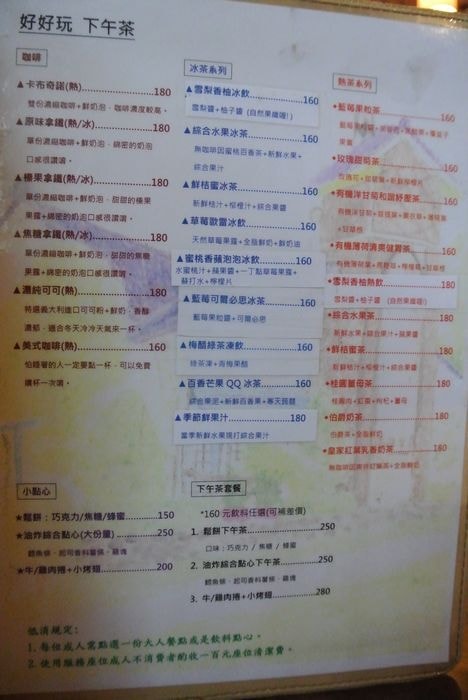 好好玩 下午茶
咖啡
▲卡布奇諾(熱)..................180
雙份濃縮咖啡+鮮奶泡，咖啡濃度較高。
▲原味拿鐵(熱/冰)..............180
單份濃縮咖啡+鮮奶泡，綿密的奶泡
口感很讚嘖。
▲榛果拿鐵(熱/冰)..............180
單份濃縮咖啡+鮮奶泡，甜甜的榛果
果露+綿密的奶泡口感很讚嘖。
▲焦糖拿鐵(熱/冰)..............180
單份濃縮咖啡+鮮奶泡，甜甜的焦糖
果露+綿密的奶泡口感很讚嘖。
▲濃純可可(熱)..................180
特選義大利進口可可粉+鮮奶，香醇
濃郁，適合冬天冷冷天氣來一杯。
▲美式咖啡(熱)..................160
怕睡著的人一定要點一杯，可以免費
續杯一次嘖。
冰茶系列
▲雪梨香柚冰飲..................160
雪梨醬+柚子醬 (自然果纖喔!)
▲綜合水果冰茶..................160
無咖啡因蜜桃百香茶+新鮮水果+
綜合果汁
▲鮮桔蜜冰茶..................160
新鮮桔汁+柳橙汁+綜合果醬
▲草莓歐雷冰飲..................160
天然草莓果露+全脂鮮奶+鮮奶油
▲蜜桃香蘋泡泡冰飲..........160
水蜜桃汁+蘋果醬+一丁點草莓果露+
蘇打水+檸檬片
▲藍莓可爾必思冰茶..........160
藍莓果粒醬+可爾必思
▲梅醋綠茶凍飲..................160
綠茶凍+青梅果醋
▲百香芒果 QQ 冰茶............160
綜合果泥+新鮮百香果+寒天蒟蒻
▲季節鮮果汁..................180
當季新鮮水果現打綜合果汁
熱茶系列
*藍莓果粒茶..................160
果醬
*玫瑰甜菊茶..................160
*有機洋甘菊和諧紓壓茶
160
+甘草根
*有機薄荷清爽健胃茶
160
*雪梨香柚熱飲..................180
雪梨醬+柚子醬 (自然果纖喔!)
*綜合水果茶..................160
新鮮水果+綜合果汁+蘋果醬
*鮮桔蜜茶..................160
新鮮桔汁+柳橙汁+綜合果醬
*桂圓薑母茶..................160
桂圓肉+紅茶+枸杞+薑母
*伯爵奶茶..................180
伯爵茶+全脂鮮奶
*皇家紅葉乳香奶茶..........160
小點心
★鬆餅：巧克力/焦糖/蜂蜜..........150
★油炸綜合點心(大份量)..........250
鱈魚條、起司香料薯條、雞塊
★牛/雞肉捲+小烤翅..........200
下午茶套餐
*160 元飲料任選(可補差價)
1. 鬆餅下午茶..................250
口味：巧克力 / 焦糖 / 蜂蜜
2. 油炸綜合點心下午茶..........250
鱈魚條、起司香料薯條、雞塊
3. 牛/雞肉捲+小烤翅..........280
低消規定：
1. 每位成人需點選一份大人餐點或是飲料點心。
2. 使用服務座位成人不消費者酌收一百元座位清潔費。